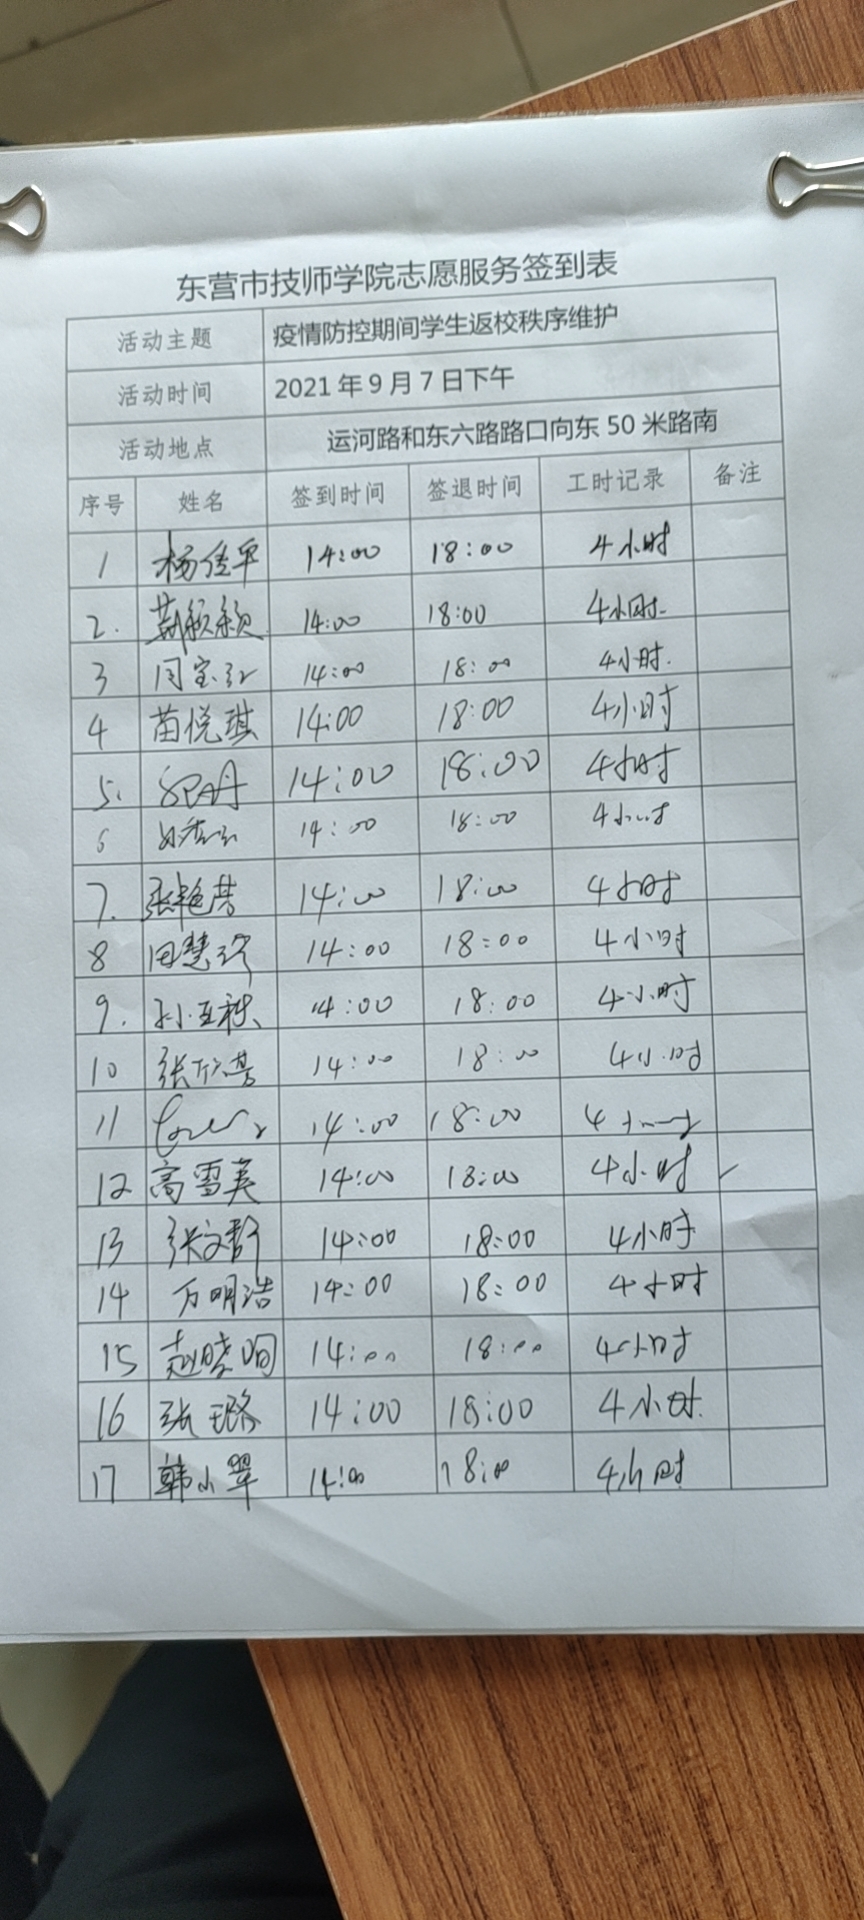 东营市技师学院志愿服务签到表
活动主题 疫情防控期间学生返校秩序维护
活动时间 2021年9月7日下午
活动地点 运河路和东六路路口向东50米路南
序号 姓名 签到时间 签退时间 工时记录 备注
1 杨佳平 14:00 18:00 4小时
2. 颖颖 14:00 18:00 4小时.
3 14:00 18:00 4小时.
4 苗悦琪 14:00 18:00 4小时
5. 14:00 18:00 4小时
6 14:00 18:00 4小时
7. 张艳芳 14:00 18:00 4小时
8 田慧珍 14:00 18:00 4小时
9. 孙亚 14:00 18:00 4小时
10 张 14:00 18:00 4小时
11 14:00 18:00 4小时
12 高雪英 14:00 18:00 4小时
13 张文静 14:00 18:00 4小时
14 万明浩 14:00 18:00 4小时
15 赵晓 14:00 18:00 4小时
16 张璐 14:00 18:00 4小时.
17 韩小翠 14:00 18:00 4小时